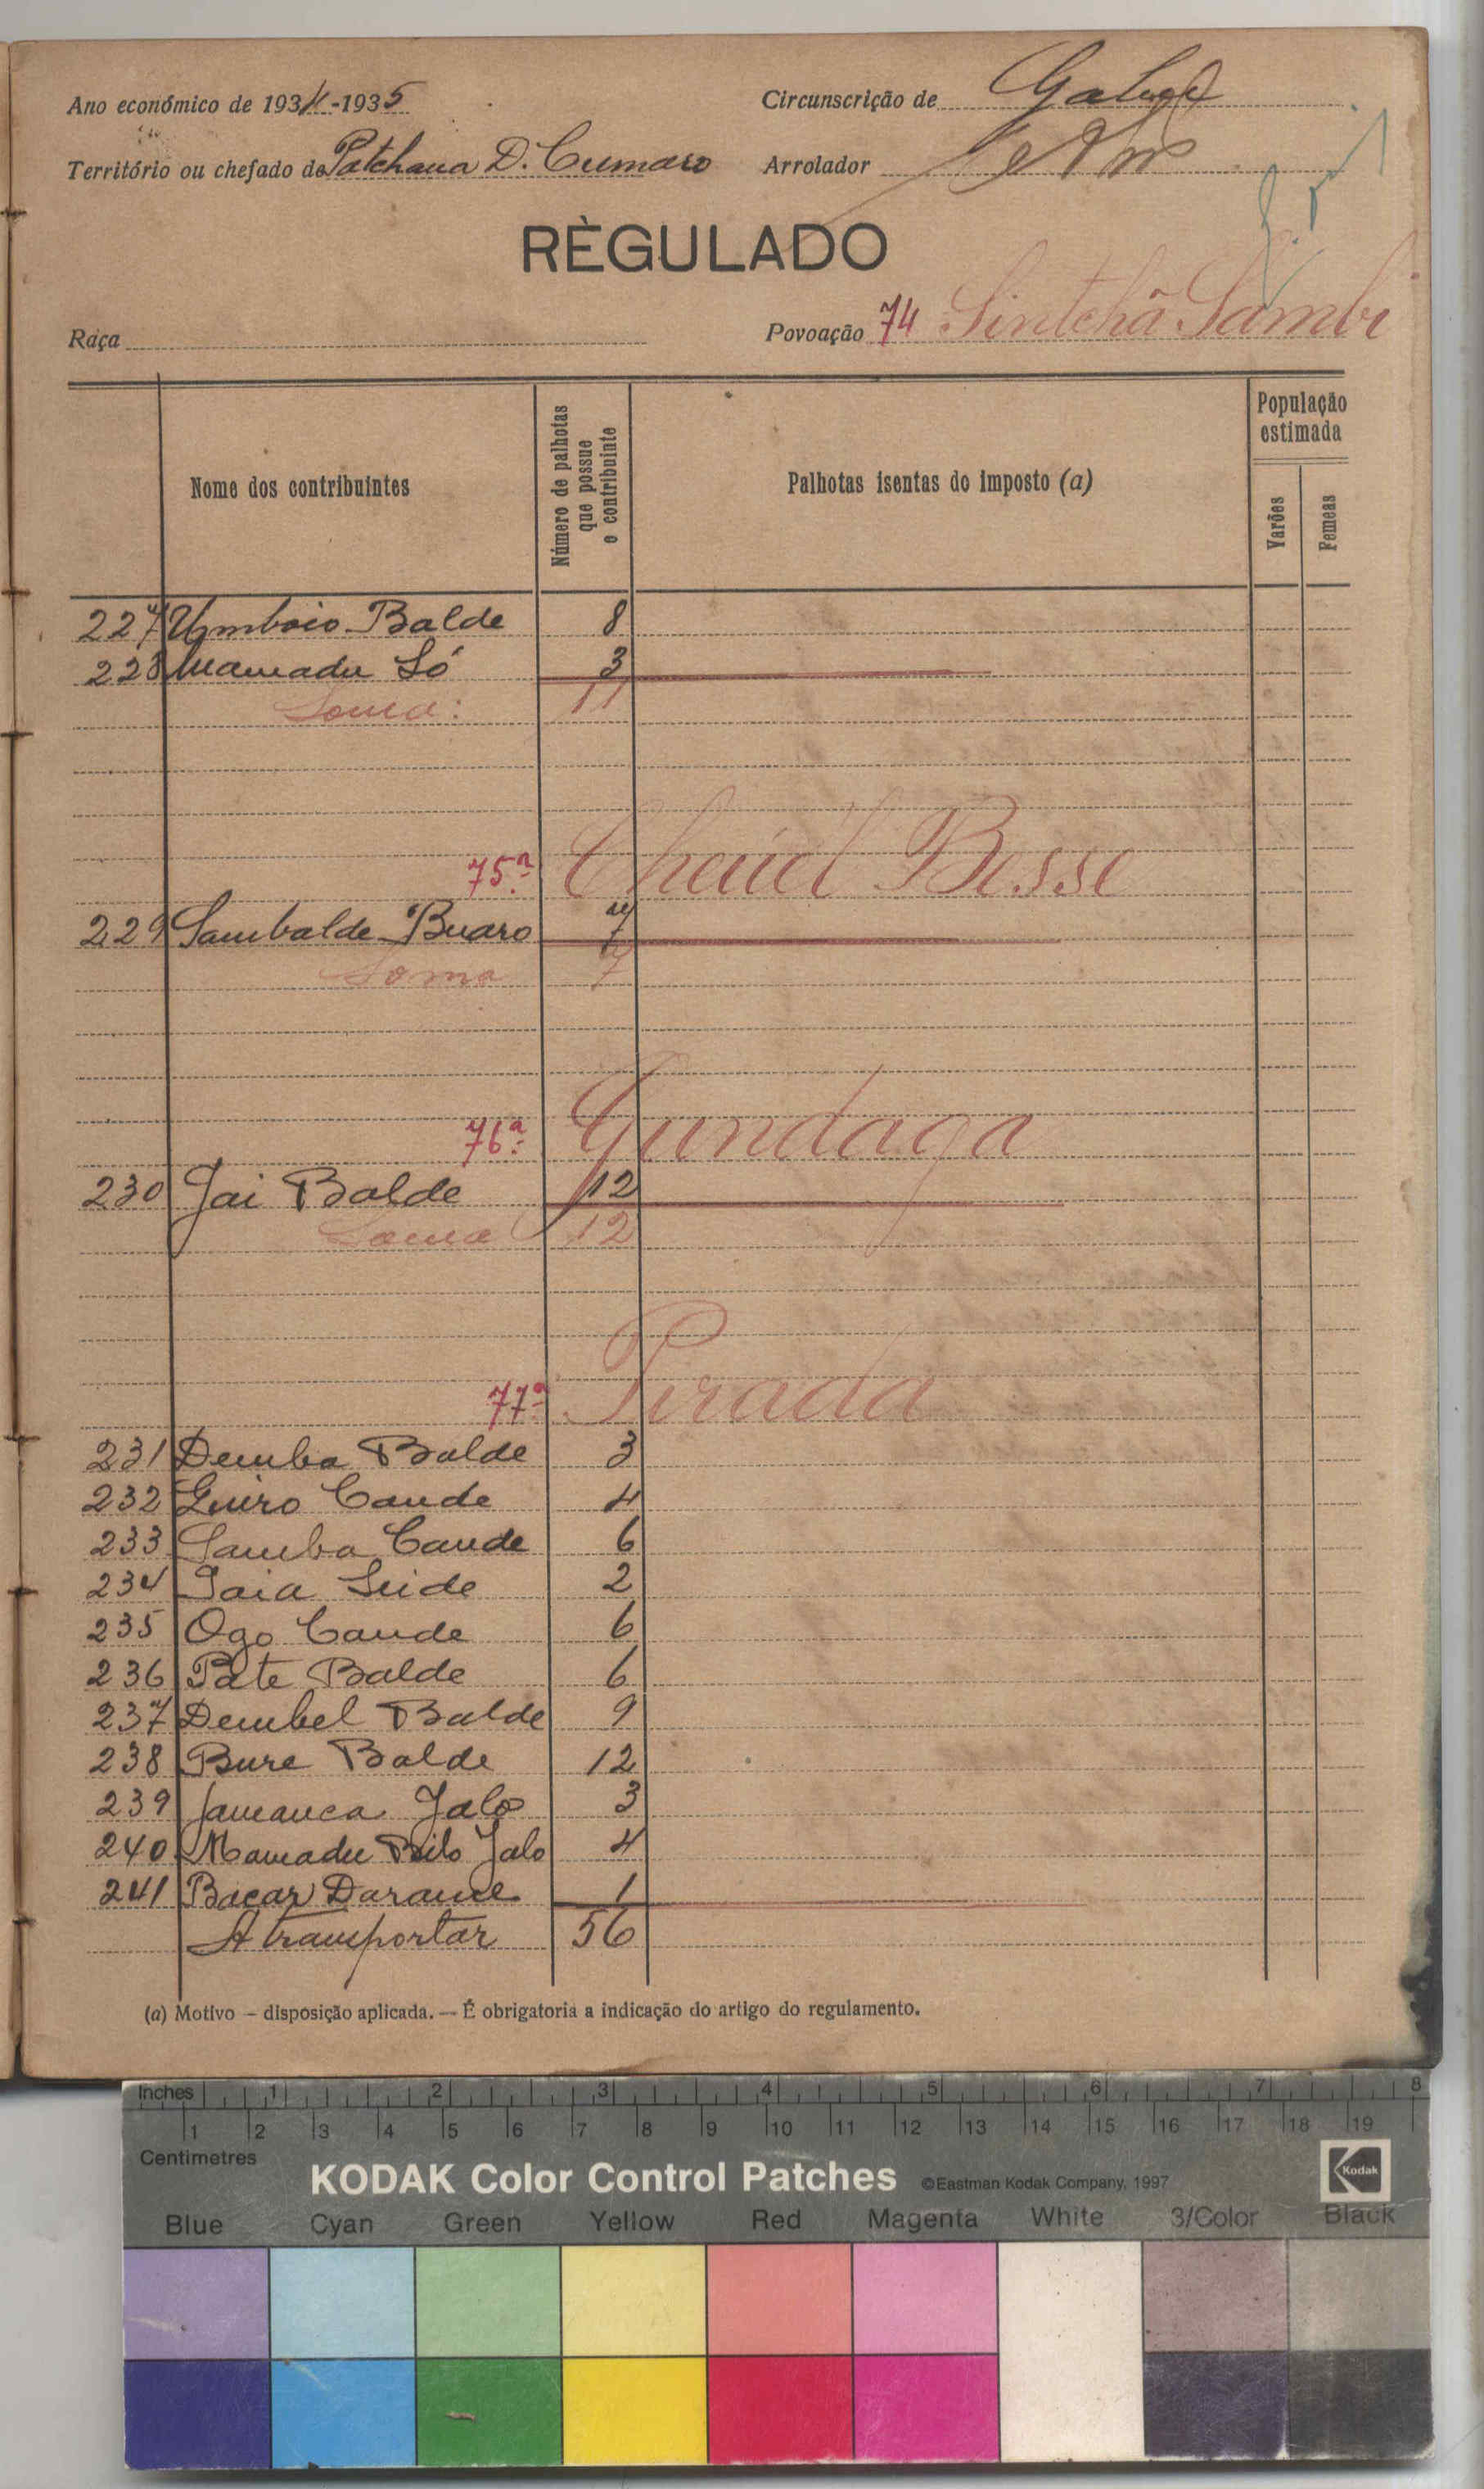 Ano económico de 1934-1935 Circunscrição de
Território ou chefado de Patchana D. Cumaro Arrolador
RÈGULADO
Raça Povoação 74 Sintchã Sambi
Nome dos contribuintes
Número de palhotas que possue o contribuinte
Palhotas isentas do imposto (a)
População estimada
Varões
Femeas
227 Umboio Balde 8
228 Mamadu Só 3
Soma: 11
75ª Besse
229 Sambalde Buaro 7
Soma 7
76ª Gundaga
230 Jai Balde 12
Soma 12
77ª Pirada
231 Demba Balde 3
232 Guiro Cande 4
233 Samba Cande 6
234 Seide 2
235 Ogo Cande 6
236 Pate Balde 6
237 Dembel Balde 9
238 Bure Balde 12
239 Jamanca Jalo 3
240 Mamadu Jalo 4
241 Bacar Darame 1
A transportar 56
(a) Motivo — disposição aplicada. — É obrigatoria a indicação do artigo do regulamento.
Inches 1 2 3 4 5 6 7 8
1 2 3 4 5 6 7 8 9 10 11 12 13 14 15 16 17 18 19
Centimetres
KODAK Color Control Patches ©Eastman Kodak Company, 1997 Kodak
Blue Cyan Green Yellow Red Magenta White 3/Color Black